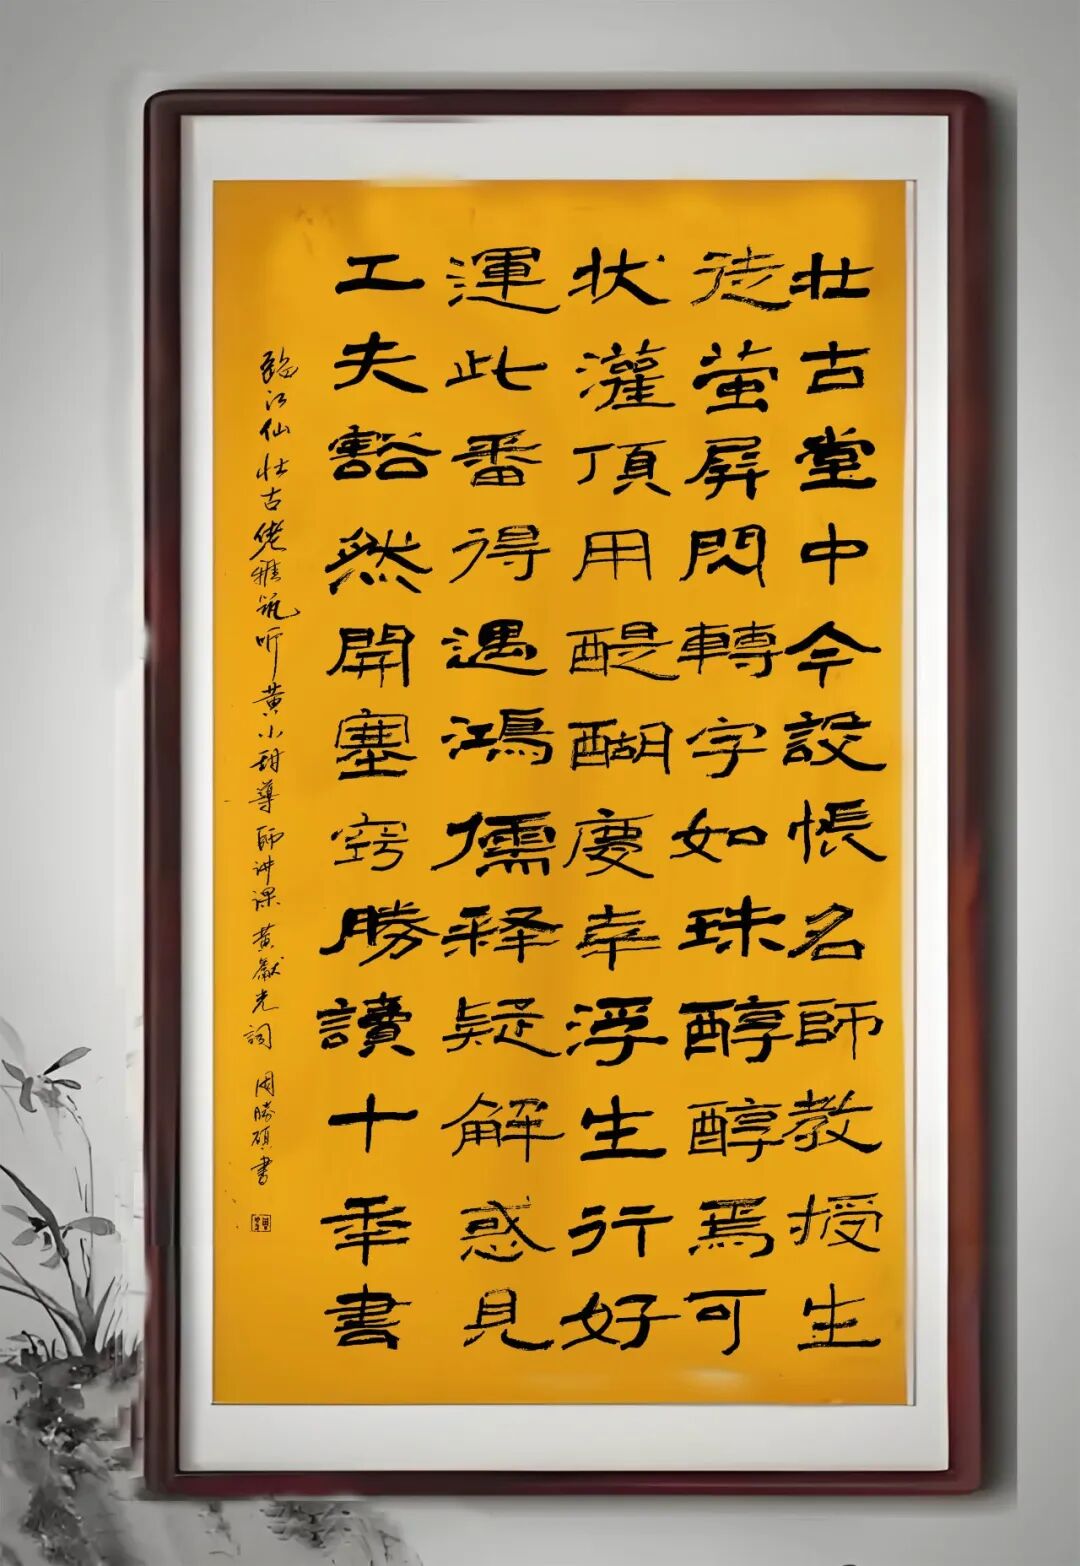 壮古堂中今設帳名師教授生
徒萤屏閃轉字如珠醇醇焉可
状灌頂用醍醐慶幸浮生行好
運此番得遇鴻儒释疑解惑見
工夫豁然開塞窍勝讀十年書
臨江仙壮古佬雅筑听黄小甜導師讲课黄献光詞 周勝碩書